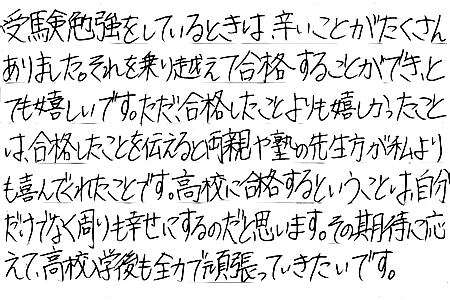 受験勉強をしているときは、辛いことがたくさん
ありました。それを乗り越えて合格することができ、と
ても嬉しいです。ただ、合格したことよりも嬉しかったこと
は、合格したことを伝えると両親や塾の先生方が私より
も喜んでくれたことです。高校に合格するということは、自分
だけでなく周りも幸せにするのだと思います。その期待に応
えて、高校入学後も全力で頑張っていきたいです。